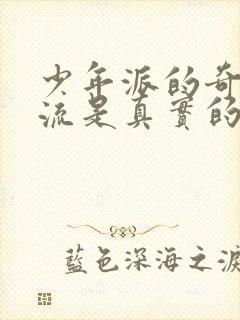 少年派的奇
流是真實的
藍色深海之淚